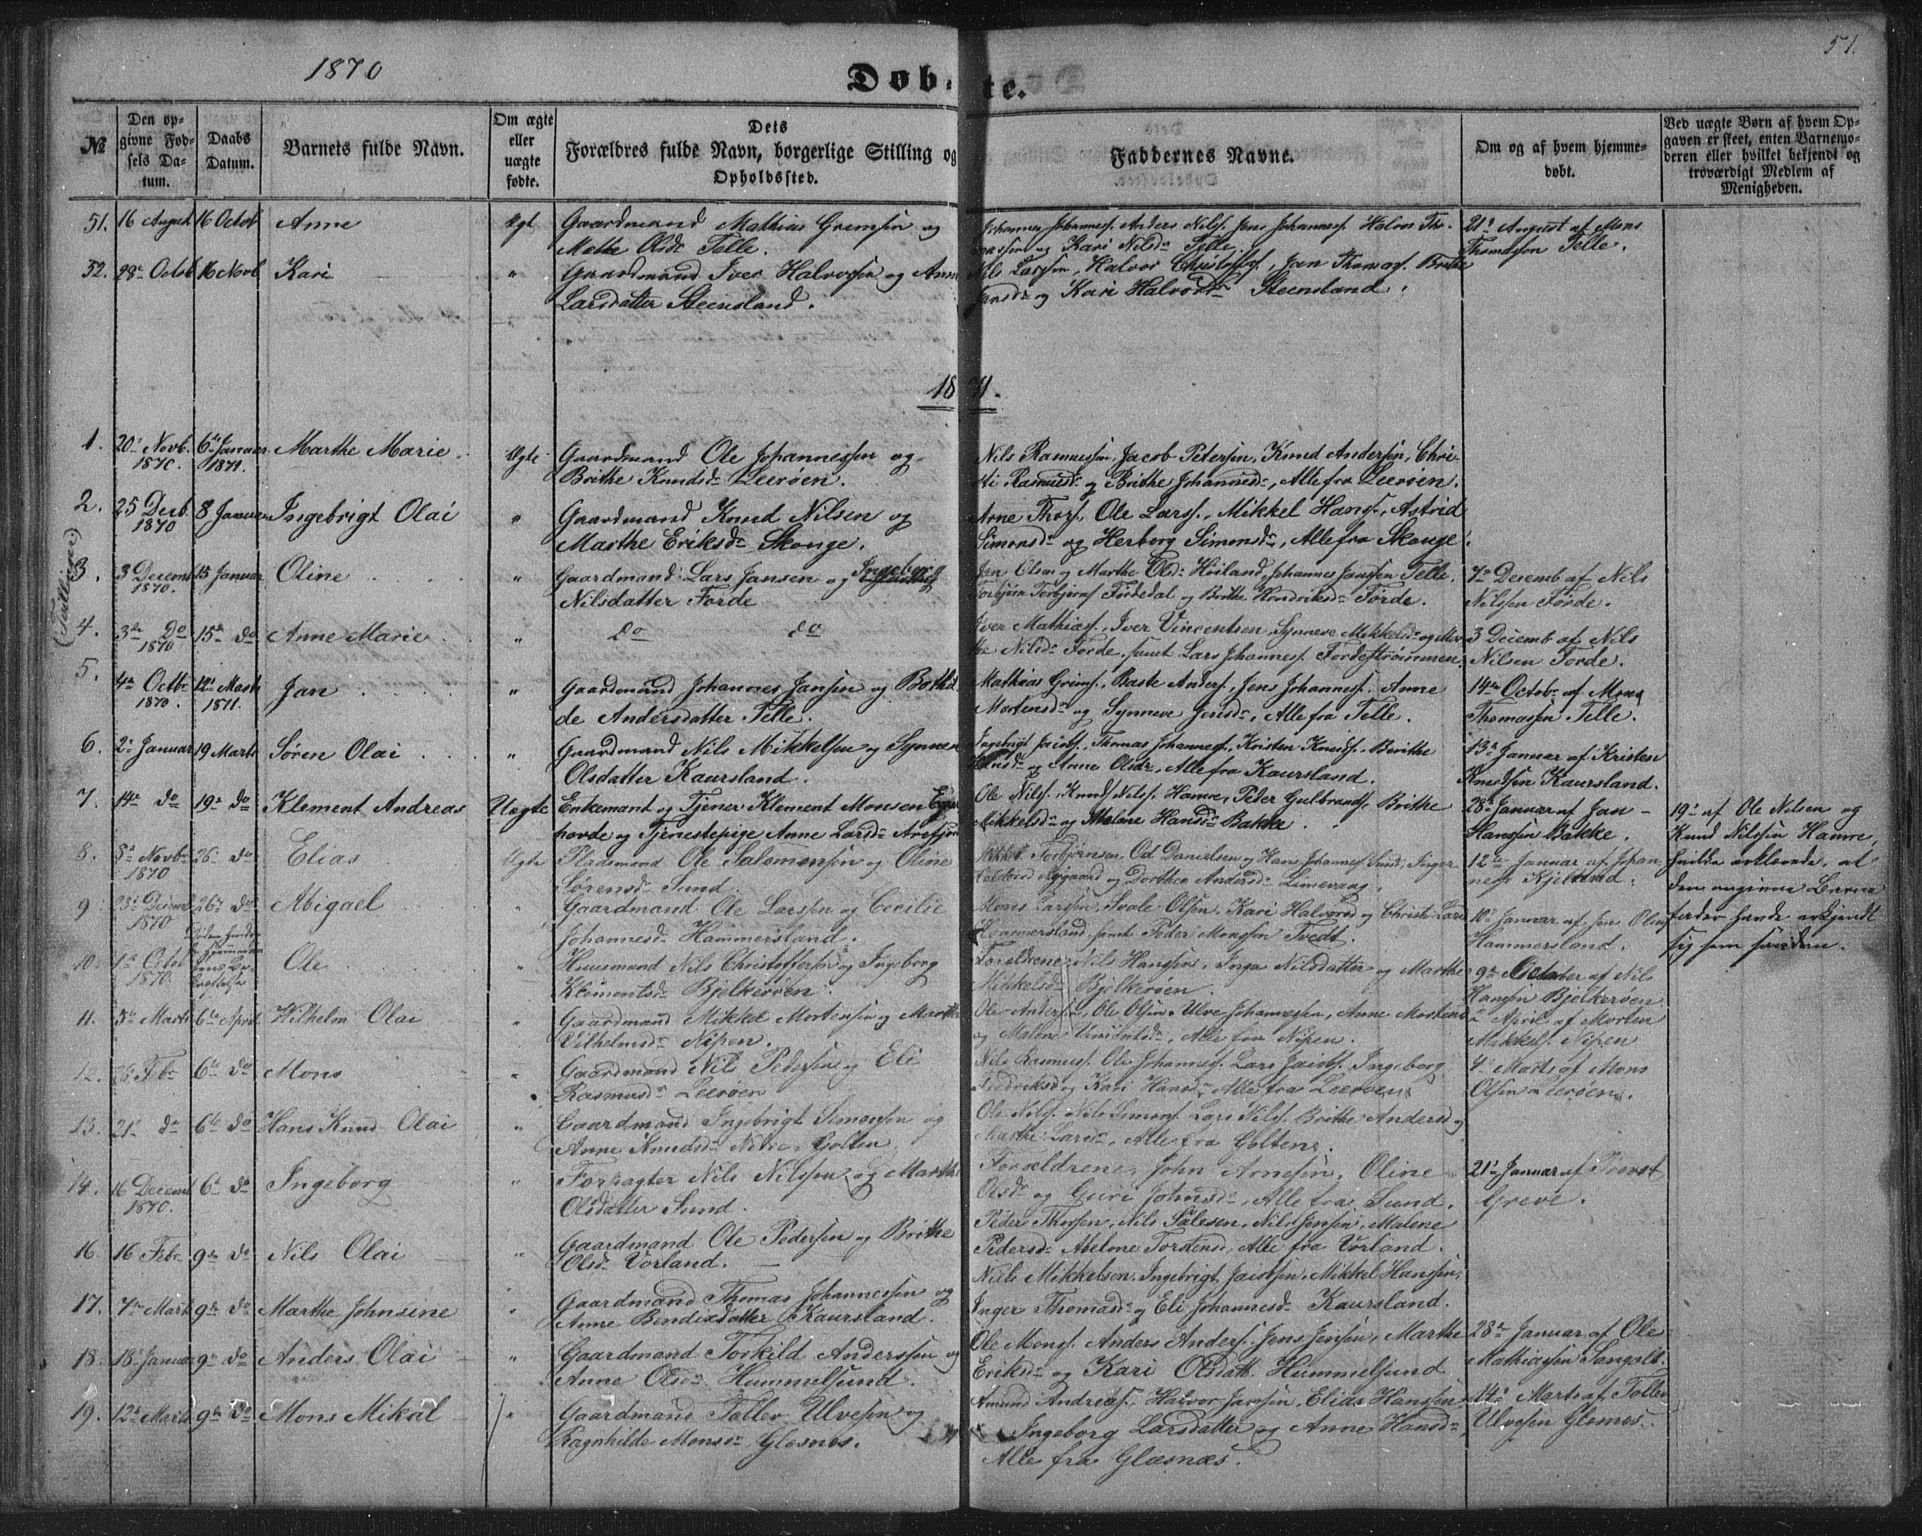 1870
51.
Døbte.
№
Den opgivne Fødsels Datum.
Daabs Datum.
Barnets fulde Navn.
Om ægte eller uægte fødte.
Dets Forældres fulde Navn, borgerlige Stilling og Opholdssted.
Faddernes Navne.
Om og af hvem hjemmedøbt.
Ved uægte Børn af hvem Opgaven er skeet, enten Barnemoderen eller hvilket bekjendt og troværdigt Medlem af Menigheden.
51. 16 August 16 Octob Anne Ægt Gaardmand Mathias Grimsen og
Mette Olsdr Telle.
Johannes Johanness. Anders Nilss. Jens Johanness. Halvor Thomassen og Kari Nilsdr Telle.
21de August af Mons
Thomassen Telle.
52. 28de Octob 16 Novb Kari " Gaardmand Iver Halvorsen og Anne
Larsdatter Steensland.
Nils Larsen, Halvor Christophs., Jan Thomass. Brithe
Jansdr og Kari Halvorsdr Steensland.
1871.
1. 20de Novb. 1870. 6te Januar 1871. Marthe Marie Ægte Gaardmand Ole Johannessen og
Brithe Knudsdr Leerøen.
Nils Rasmussen, Jacob Petersen, Knud Andersen, Christi Rasmusdr og Brithe Johannesdr, Alle fra Leerøen.
2. 25 Decb. 1870 8 Januar Ingebrigt Olai " Gaardmand Knud Nilsen og
Marthe Eriksdr Skouge.
Arne Thors., Ole Larss., Mikkel Hanss., Astrid
Simonsdr og Herborg Simonsdr, Alle fra Skouge.
(Tvilling)
3. 3 Decemb 1870. 15 Januar Oline " Gaardmand Lars Jansen og Ingeborg
Nilsdatter Førde
Jan Olsen og Marthe Olsdr Høiland, Johannes Jansen Telle.
Torbjørn Torbjørns. Førdedal og Brithe Hendriksdr Førde.
7de Decemb af Nils
Nilssen Førde.
4. 3de Do 1870 15de do Anne Marie " do do
Iver Mathiass. Iver Vincentsen Synneve Mikkelsdr og Marthe Nilsdr Førde, samt Lars Johanness. Førdestrømmen.
3 Decemb af Nils
Nilsen Førde.
5. 4de Octbr 1870. 12te Marts 1871. Jan " Gaardmand Johannes Jansen og Bothilde Andersdatter Telle.
Mathias Grims., Baste Anders., Jens Johanness. Anne
Mortensdr og Synneve Jensdr, Alle fra Telle.
14de Octobr af Mons
Thomassen Telle.
6. 2de Januar 19 Marts Søren Olai " Gaardmand Nils Mikkelsen og Synneve
Olsdatter Kaursland.
Ingebrigt Jacobs., Thomas Johanness., Kristen Knuds., Berithe
Hansdr og Anne Olsdr, Alle fra Kaursland.
13de Januar af Kristen
Knudsen Kaursland.
7. 14de do 19de do Klement Andreas Uægte Enkemand og Tjener Klement Monsen
og Tjenestepige Anne Larsdr
Ole Nilss. Knud Nilss. Hamre, Peder Gulbrands. Brithe
Mikkelsdr og Abelone Hansdr Bakke.
28de Januar af Jan
Hanssen Bakke.
19de af Ole Nilsen og
Knud Nilssen Hamre,
hvilke erklærede, at
den angivne Barnefader havde erkjendt
sig som saadan.
8. 8de Novbr 1870 26de do Elias Ægte Pladsmand Ole Salomonsen og Oline
Sørensdr Sund.
Mikkel Torbjørnsen, Od Danielsen og Hans Johanness. Sund, Inger
og Dorthea Andersdr Limevaag.
12te Januar af Johannes Kjelstad.
9 23de Decemb 1870 26de do Abigael " Gaardmand Ole Larssen og Cecilie
Johannesdr Hammersland.
Mons Larssen, Svale Olsen, Kari Halvorsd og Christi Larsd
Hammersland, samt Peder Monssen Tvedt.
10de Januar af Jens Olsen
Hammersland.
10. 1de Octob 1870. Ole " Huusmand Nils Christoffersen og Ingeborg
Klementsdr Bjelkerøen.
Forældrene, Nils Hanssen, Inga Nilsdatter og Marthe
Mikkelsdr Bjelkerøen.
9de October af Nils
Hanssen Bjelkerøen.
11. 5te Marts 6te April Wilhelm Olai " Gaardmand Mikkel Mortensen og Marthe
Vilhelmsdr Nipen.
Ole Anderss., Ole Olsen, Ulve Johannessen, Anne Mortensd
og Malene Vincentsdr, Alle fra Nipen.
2 April af Morten
Mikkels. Nipen
12. Febr 6te do Mons " Gaardmand Nils Pedersen og Eli
Rasmusdr Leerøen
Nils Rasmuss. Ole Johanness. Lars Jacobs. Ingeborg
Fredriksd og Kari Hansdr Alle fra Leerøen
4de Marts af Mons
Olsen Leerøen.
13. 21de do 6te do Hans Knud Olai " Gaardmand Ingebrigt Simonsen og
Anne Knudsdr Nedre Golten.
Ole Nilss. Nils Simons. Lars Nilss. Brithe Andersd og
Marthe Larsdr, Alle fra Golten.
14. 16 Decemb 1870. 6te do Ingeborg " Forpagter Nils Nilssen og Marthe
Olsdatter Sund.
Forældrene, John Arnesen, Oline
Olsdr og Guri Johnsdr, Alle fra Sund.
21de Januar af Provst
Greve.
16. 16 Febr 9de do Nils Olai " Gaardmand Ole Pedersen og Brithe
Olsdr Vorland.
Peder Thorsen, Nils Salesen, Nils Jensen, Malene
Pedersdr Abelone Torstensd, Alle fra Vorland.
17. 7de Marts 9de do Marthe Johnsine " Gaardmand Thomas Johannessen og
Anne Bendixdatter Kaursland.
Niels Mikkelsen, Ingebrigt Jacobsen, Mikkel Hanssen,
Inger Thomasdr og Eli Johannesdr Kaursland.
18. 18de Januar 9de do Anders Olai " Gaardmand Torkild Anderssen og
Anne Olsdr Hummelsund.
Ole Monss. Anders Anders. Jens Jensen, Marthe
Eriksdr og Kari Olsdatt. Hummelsund
28de Januar af Ole
Mathiassen Sangolt.
19. 12te Marts 9de do Mons Mikal " Gaardmand Tollev Ulvesen og
Ragnhilde Monsdr Glesnes.
Amund Andreass. Halvor Jansen, Elias Hanssen
Ingeborg Larsdatter og Anne Hansdr
Alle fra Glesnæs.
14de Marts af Tollev
Ulvesen Glesnes.